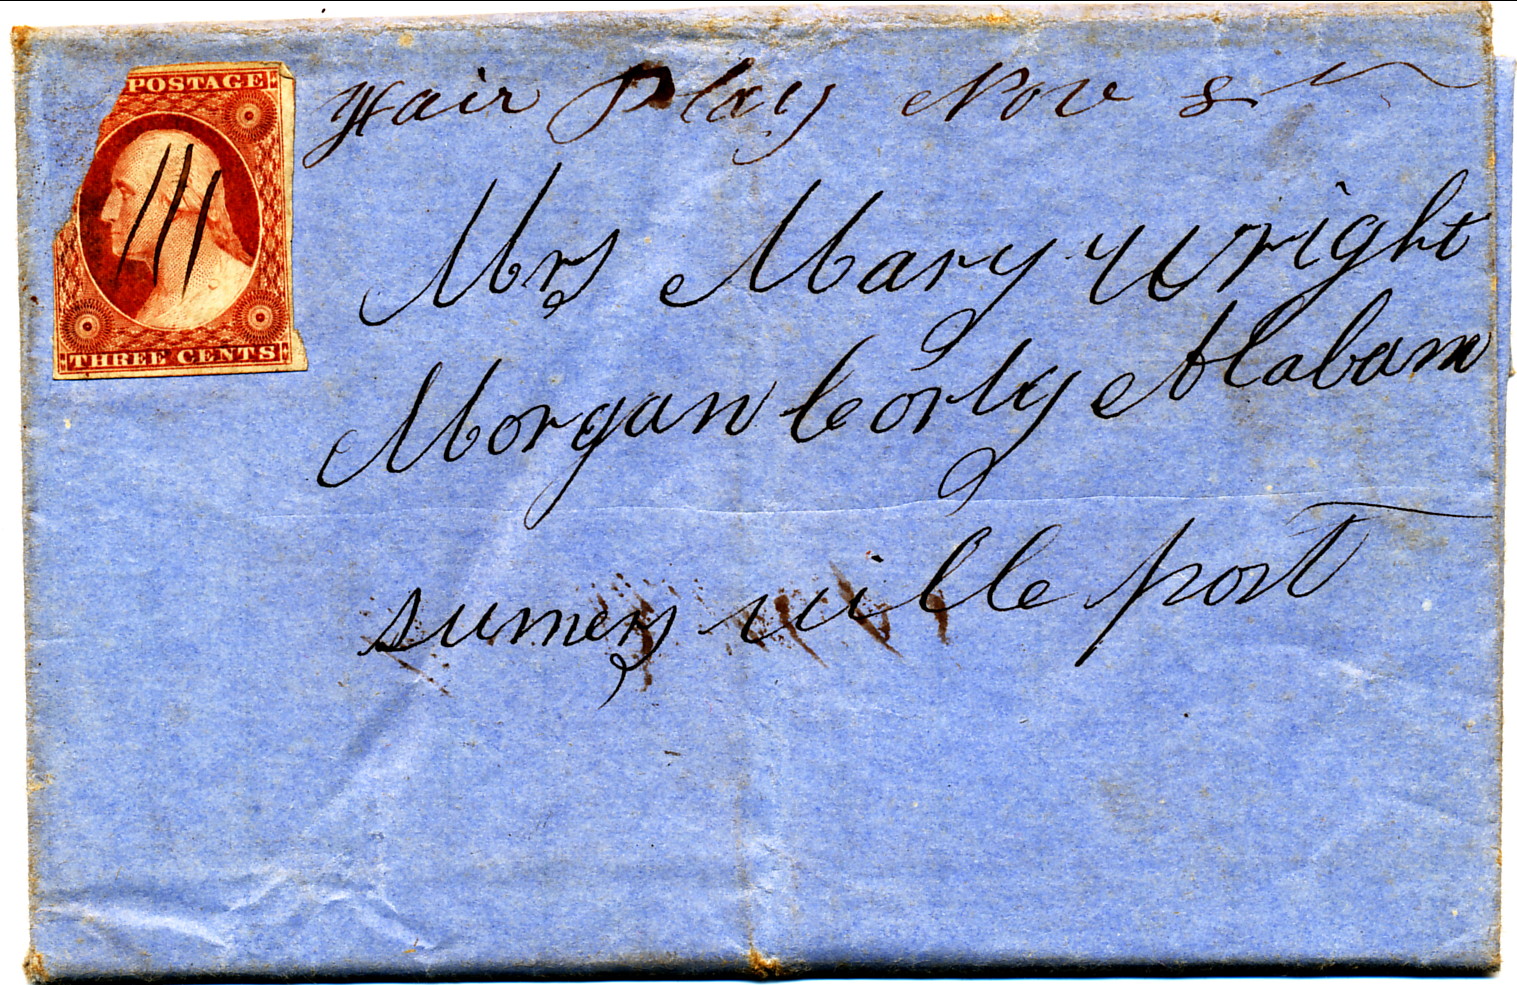 POSTAGE
THREE CENTS
Fair Play Nov 8
Mrs Mary Wright
Morgan Conty Alabam
sumers ville post